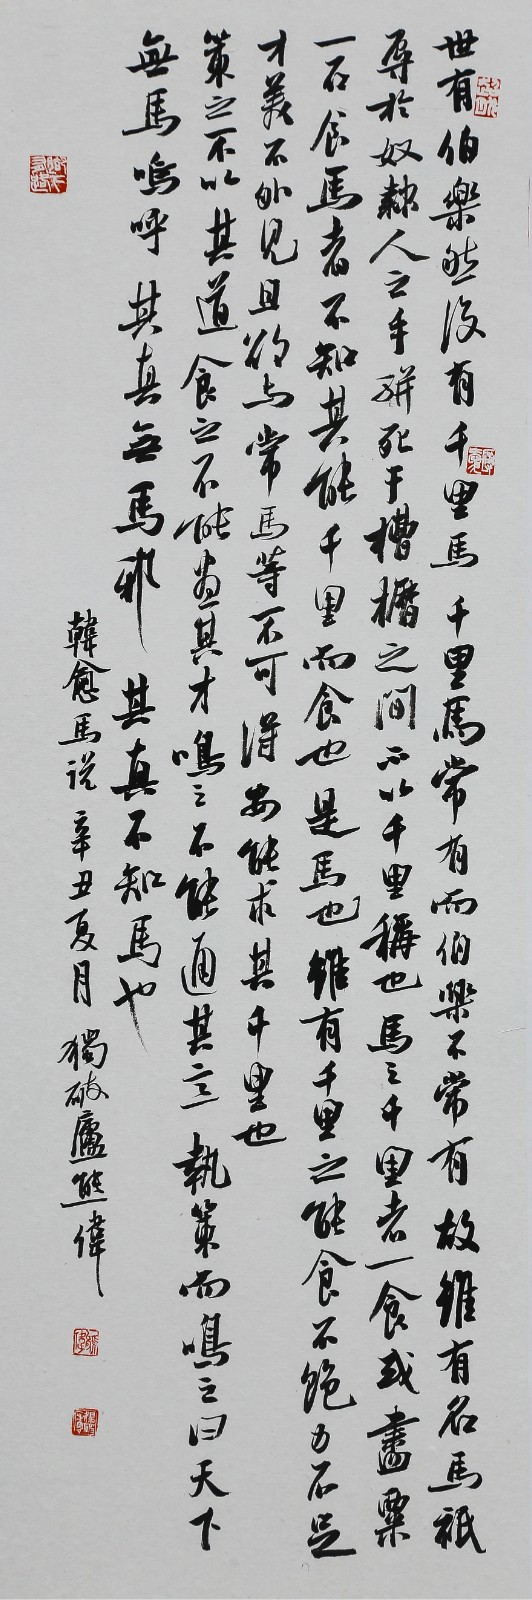 世有伯樂然後有千里馬千里馬常有而伯樂不常有故雖有名馬祇
辱於奴隸人之手駢死于槽櫪之間不以千里稱也馬之千里者一食或盡粟
一石食馬者不知其能千里而食也是馬也雖有千里之能食不飽力不足
才美不外見且欲与常馬等不可得安能求其千里也
策之不以其道食之不能盡其才鳴之不能通其意執策而鳴之曰天下
無馬嗚呼其真無馬邪其真不知馬也
韓愈馬说辛丑夏月獨破廬熊偉